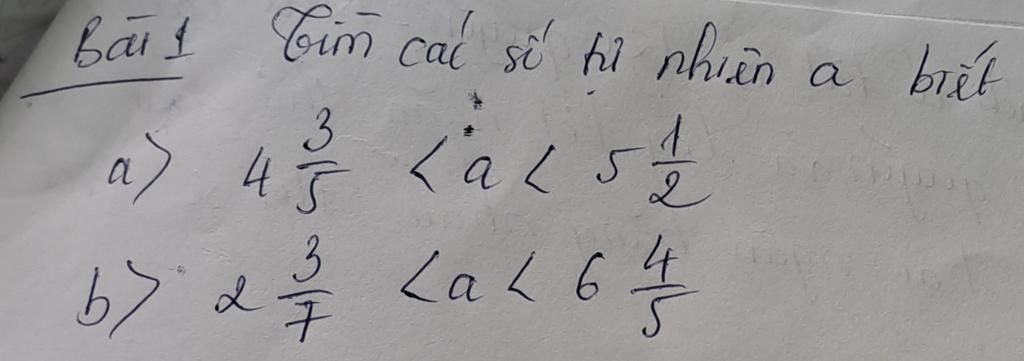 Bài 1 Tìm các số tự nhiên a biết
a) 4 3/5 < a < 5 1/2
b) 2 3/7 < a < 6 4/5